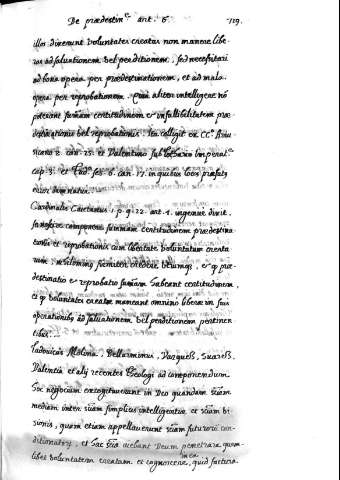 De prædestin.e art. 6. 129.
illos dixerunt voluntates creatas non manere libe-
ras ad salvationem vel perditionem, sed necessitari
ad bona opera per prædestinationem, et ad mala
opera per reprobationem. aliter intelligere nō
poterant summam certitudinem et infallibilitatem præ-
destinationis vel reprobationis. colligit ex
2. can. 25. et Valentino sub Lothario Imperat.e
cap. 3. et ses. 6. can. 17. in quibus locis præfatus
error damnatur.
Cardinalis Caietanus 1. p. q. 22. art. 4. ingenue dixit
componere summam certitudinem prædestina
tionis et reprobationis cum libertate voluntatum creata
rum: firmiter credere utrumq, et q præ-
destinatio et reprobatio summam habeant certitudinem,
et q voluntates creatæ maneant omnino liberæ in suis
operationibus ad salvationem vel perditionem pertinen
tibus.
Ludovicus Molina, Bellarminus, Vasques, Suares,
Valentia et alij recentes Theologi ad componendum
hoc negocium excogitaverunt in Deo quandam sciām
mediam inter sciām simplicis intelligentiæ et sciām vi-
sionis, quam etiam appellaverunt sciām futurorū con-
ditionatorū, et hac sciā aiebant Deum penetrare quam-
libet voluntatem creatam et cognoscere, quid factura